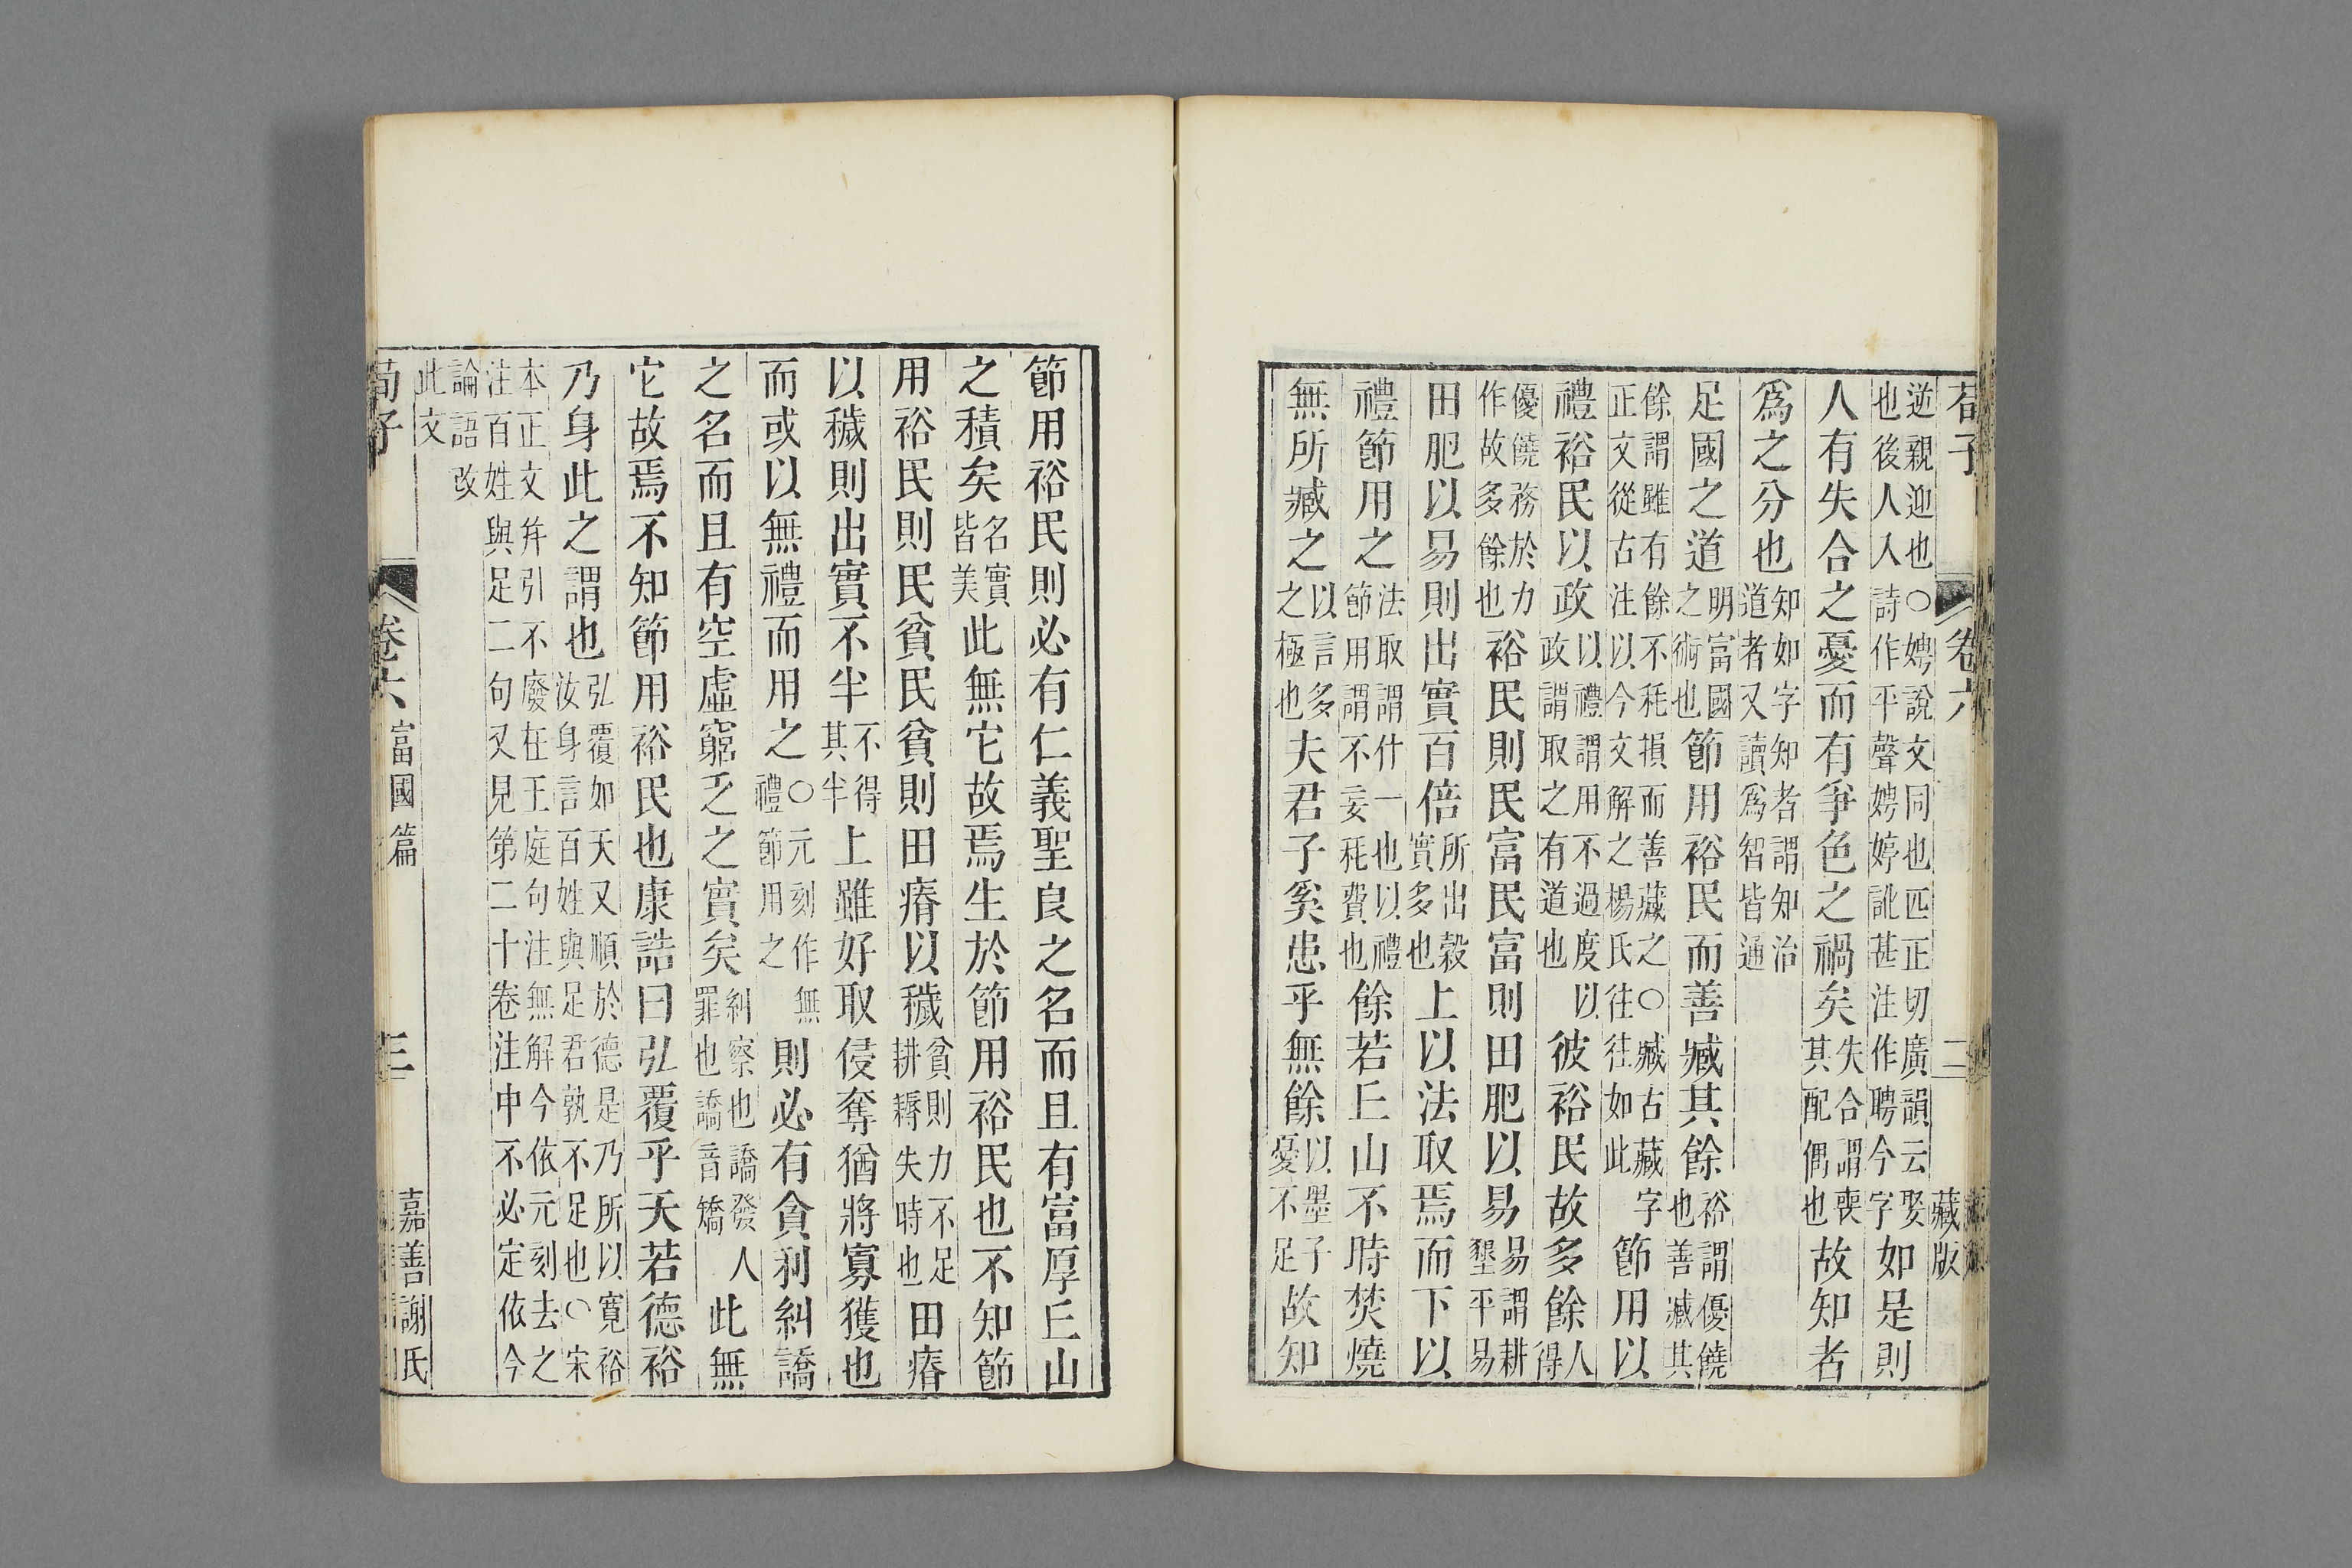 荀子 卷六 二 藏版
逆親迎也○娉說文同也匹正切廣韻云娶也後人入詩作平聲娉婷訛甚注作聘今字如是則
人有失合之憂而有爭色之禍矣失合謂喪其配偶也故知者
爲之分也知如字知者謂知治道者又讀爲智皆通
足國之道明富國之術也節用裕民而善臧其餘裕謂優饒也善臧其
餘謂雖有餘不秏損而善藏之○臧古藏字正文從古注以今文解之楊氏往往如此節用以
禮裕民以政以禮謂用不過度以政謂取之有道也彼裕民故多餘人得
優饒務於力作故多餘也裕民則民富民富則田肥以易易謂耕墾平易
田肥以易則出實百倍所出穀實多也上以法取焉而下以
禮節用之法取謂什一也以禮節用謂不妄秏費也餘若丘山不時焚燒
無所臧之以言多之極也夫君子奚患乎無餘以墨子憂不足故知
節用裕民則必有仁義聖良之名而且有富厚丘山
之積矣名實皆美此無它故焉生於節用裕民也不知節
用裕民則民貧民貧則田瘠以穢貧則力不足耕耨失時也田瘠
以穢則出實不半不得其半上雖好取侵奪猶將寡獲也
而或以無禮而用之○元刻作無禮節用之則必有貪利糾譑
之名而且有空虛窮乏之實矣糾察也譑發人罪也譑音矯此無
它故焉不知節用裕民也康誥曰弘覆乎天若德裕
乃身此之謂也弘覆如天又順於德是乃所以寬裕汝身言百姓與足君孰不足也○宋
本正文幷引不廢在王庭句注無解今依元刻去之注百姓與足二句又見第二十卷注中不必定依今
論語改此文
荀子 卷六 富國篇 三 嘉善謝氏